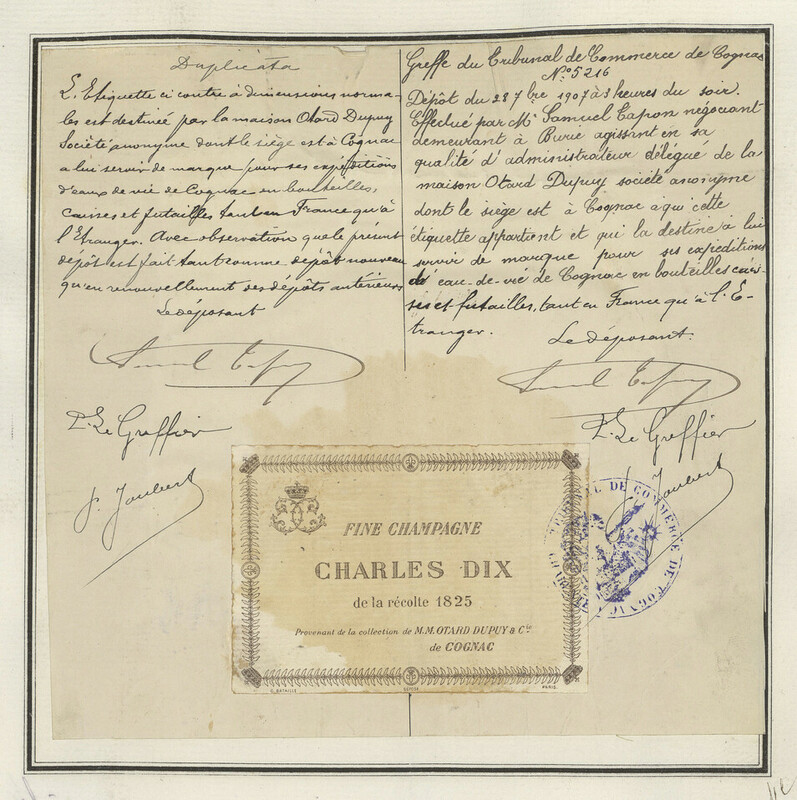 Duplicata
L'Etiquette ci contre à dimensions norma-
les est destinée par la maison Otard Dupuy
Société anonyme dont le siège est à Cognac
à lui servir de marque pour ses expéditions
d'eaux de vie de Cognac en bouteilles,
caisses et futailles tant en France qu'à
l'Etranger. Avec observation que le présent
dépôt est fait tant comme dépôt nouveau
qu'en renouvellement des dépôts antérieurs
Le déposant
P. Le Greffier
J. Joubert
Greffe du Tribunal de Commerce de Cognac
N.º 5216
Dépôt du 28 7bre 1907 à 3 heures du soir.
Effectué par Mr Samuel Tapon négociant
demeurant à Burie agissant en sa
qualité d'administrateur délégué de la
maison Otard Dupuy société anonyme
dont le siège est à Cognac à qui cette
étiquette appartient et qui la destine à lui
servir de marque pour ses expéditions
d'eau-de-vie de Cognac en bouteilles cais-
ses et futailles, tant en France qu'à l'E-
tranger.
Le déposant.
P. Le Greffier
Joubert
FINE CHAMPAGNE
CHARLES DIX
de la récolte 1825
Provenant de la collection de M.M. OTARD DUPUY & Cie
de COGNAC
G. BATAILLE
PARIS
TRIBUNAL DE COMMERCE DE COGNAC